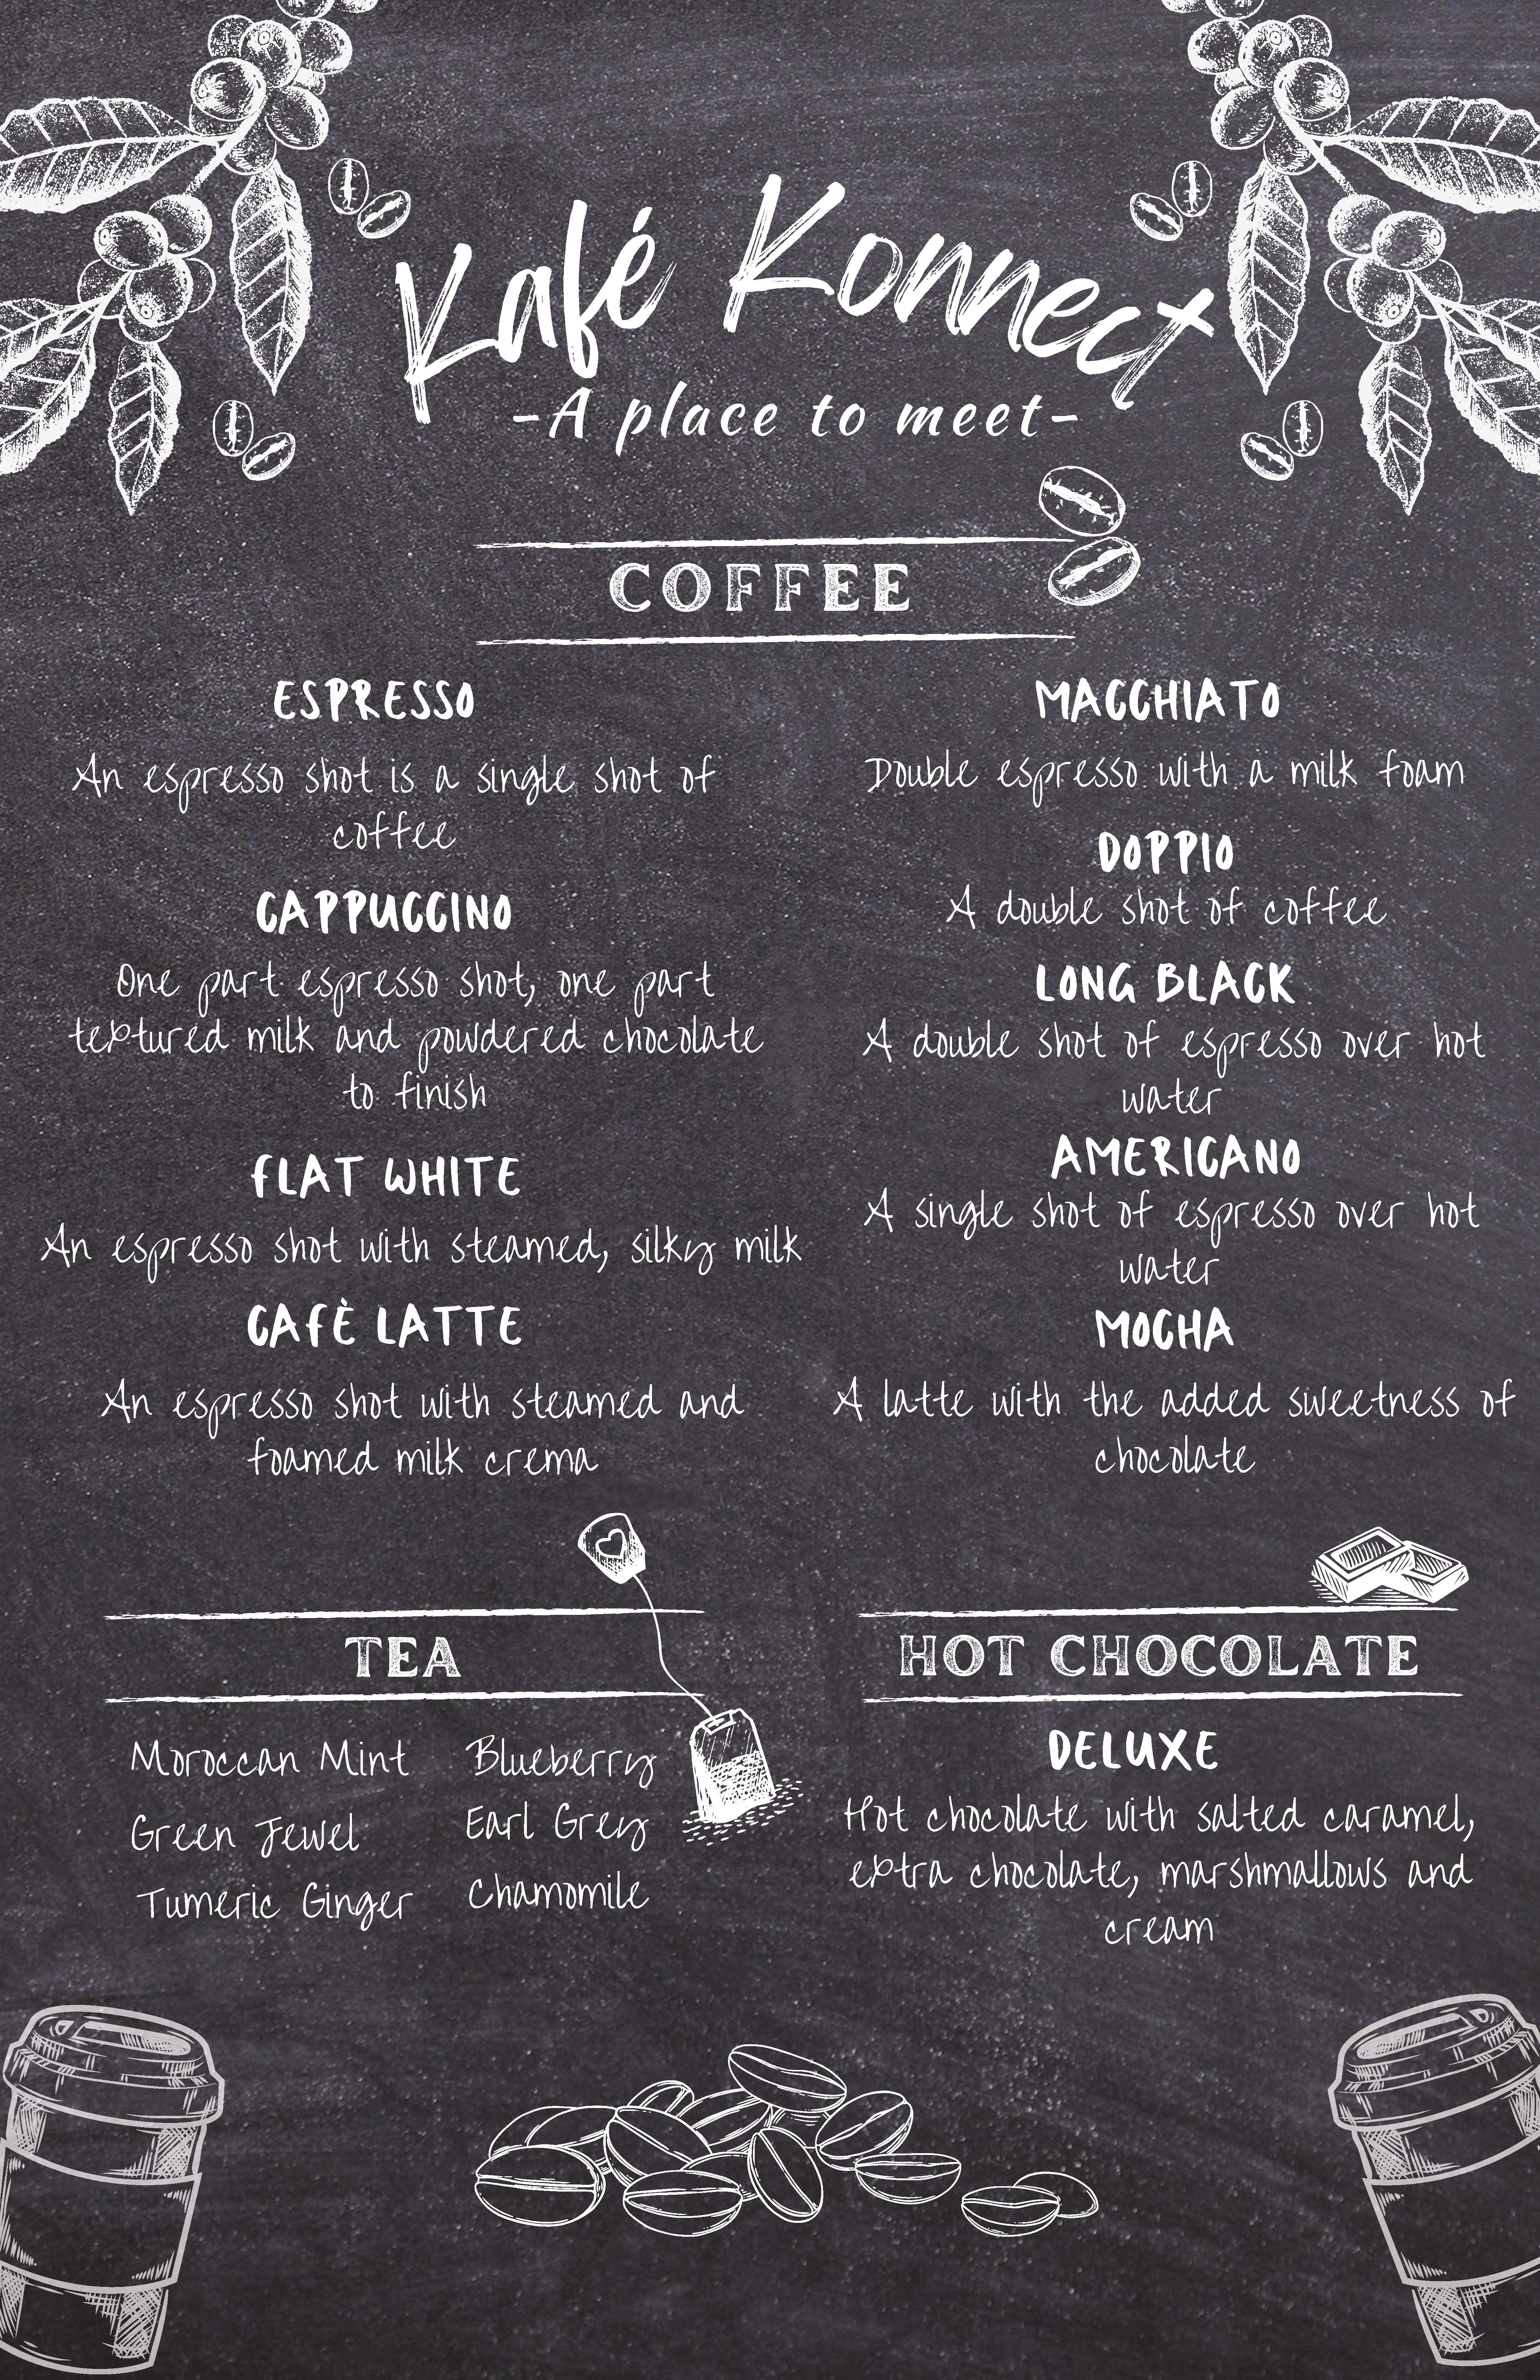 Kafé Konnect
-A place to meet-
COFFEE
ESPRESSO
An espresso shot is a single shot of
coffee
CAPPUCCINO
One part espresso shot, one part
textured milk and powdered chocolate
to finish
FLAT WHITE
An espresso shot with steamed, silky milk
CAFÈ LATTE
An espresso shot with steamed and
foamed milk crema
MACCHIATO
Double espresso with a milk foam
DOPPIO
A double shot of coffee
LONG BLACK
A double shot of espresso over hot
water
AMERICANO
A single shot of espresso over hot
water
MOCHA
A latte with the added sweetness of
chocolate
TEA
Moroccan Mint
Green Jewel
Tumeric Ginger
Blueberry
Earl Grey
Chamomile
HOT CHOCOLATE
DELUXE
Hot chocolate with salted caramel,
extra chocolate, marshmallows and
cream